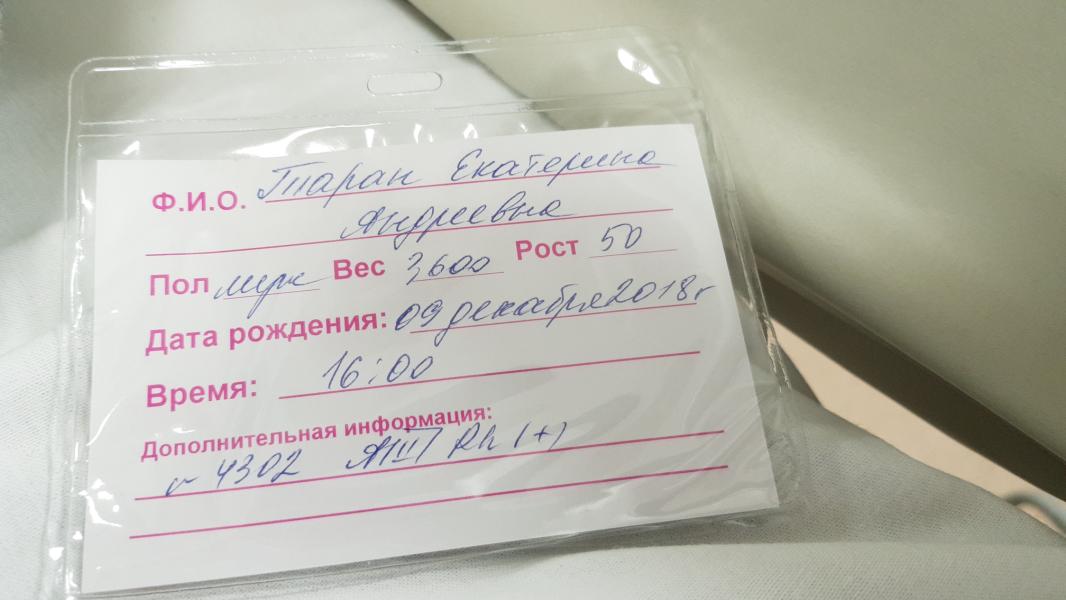 Ф.И.О. Таран Екатерина
Андреевна
Пол муж Вес 3600 Рост 50
Дата рождения: 09 декабря 2018 г
Время: 16:00
Дополнительная информация:
4302 Rh (+)